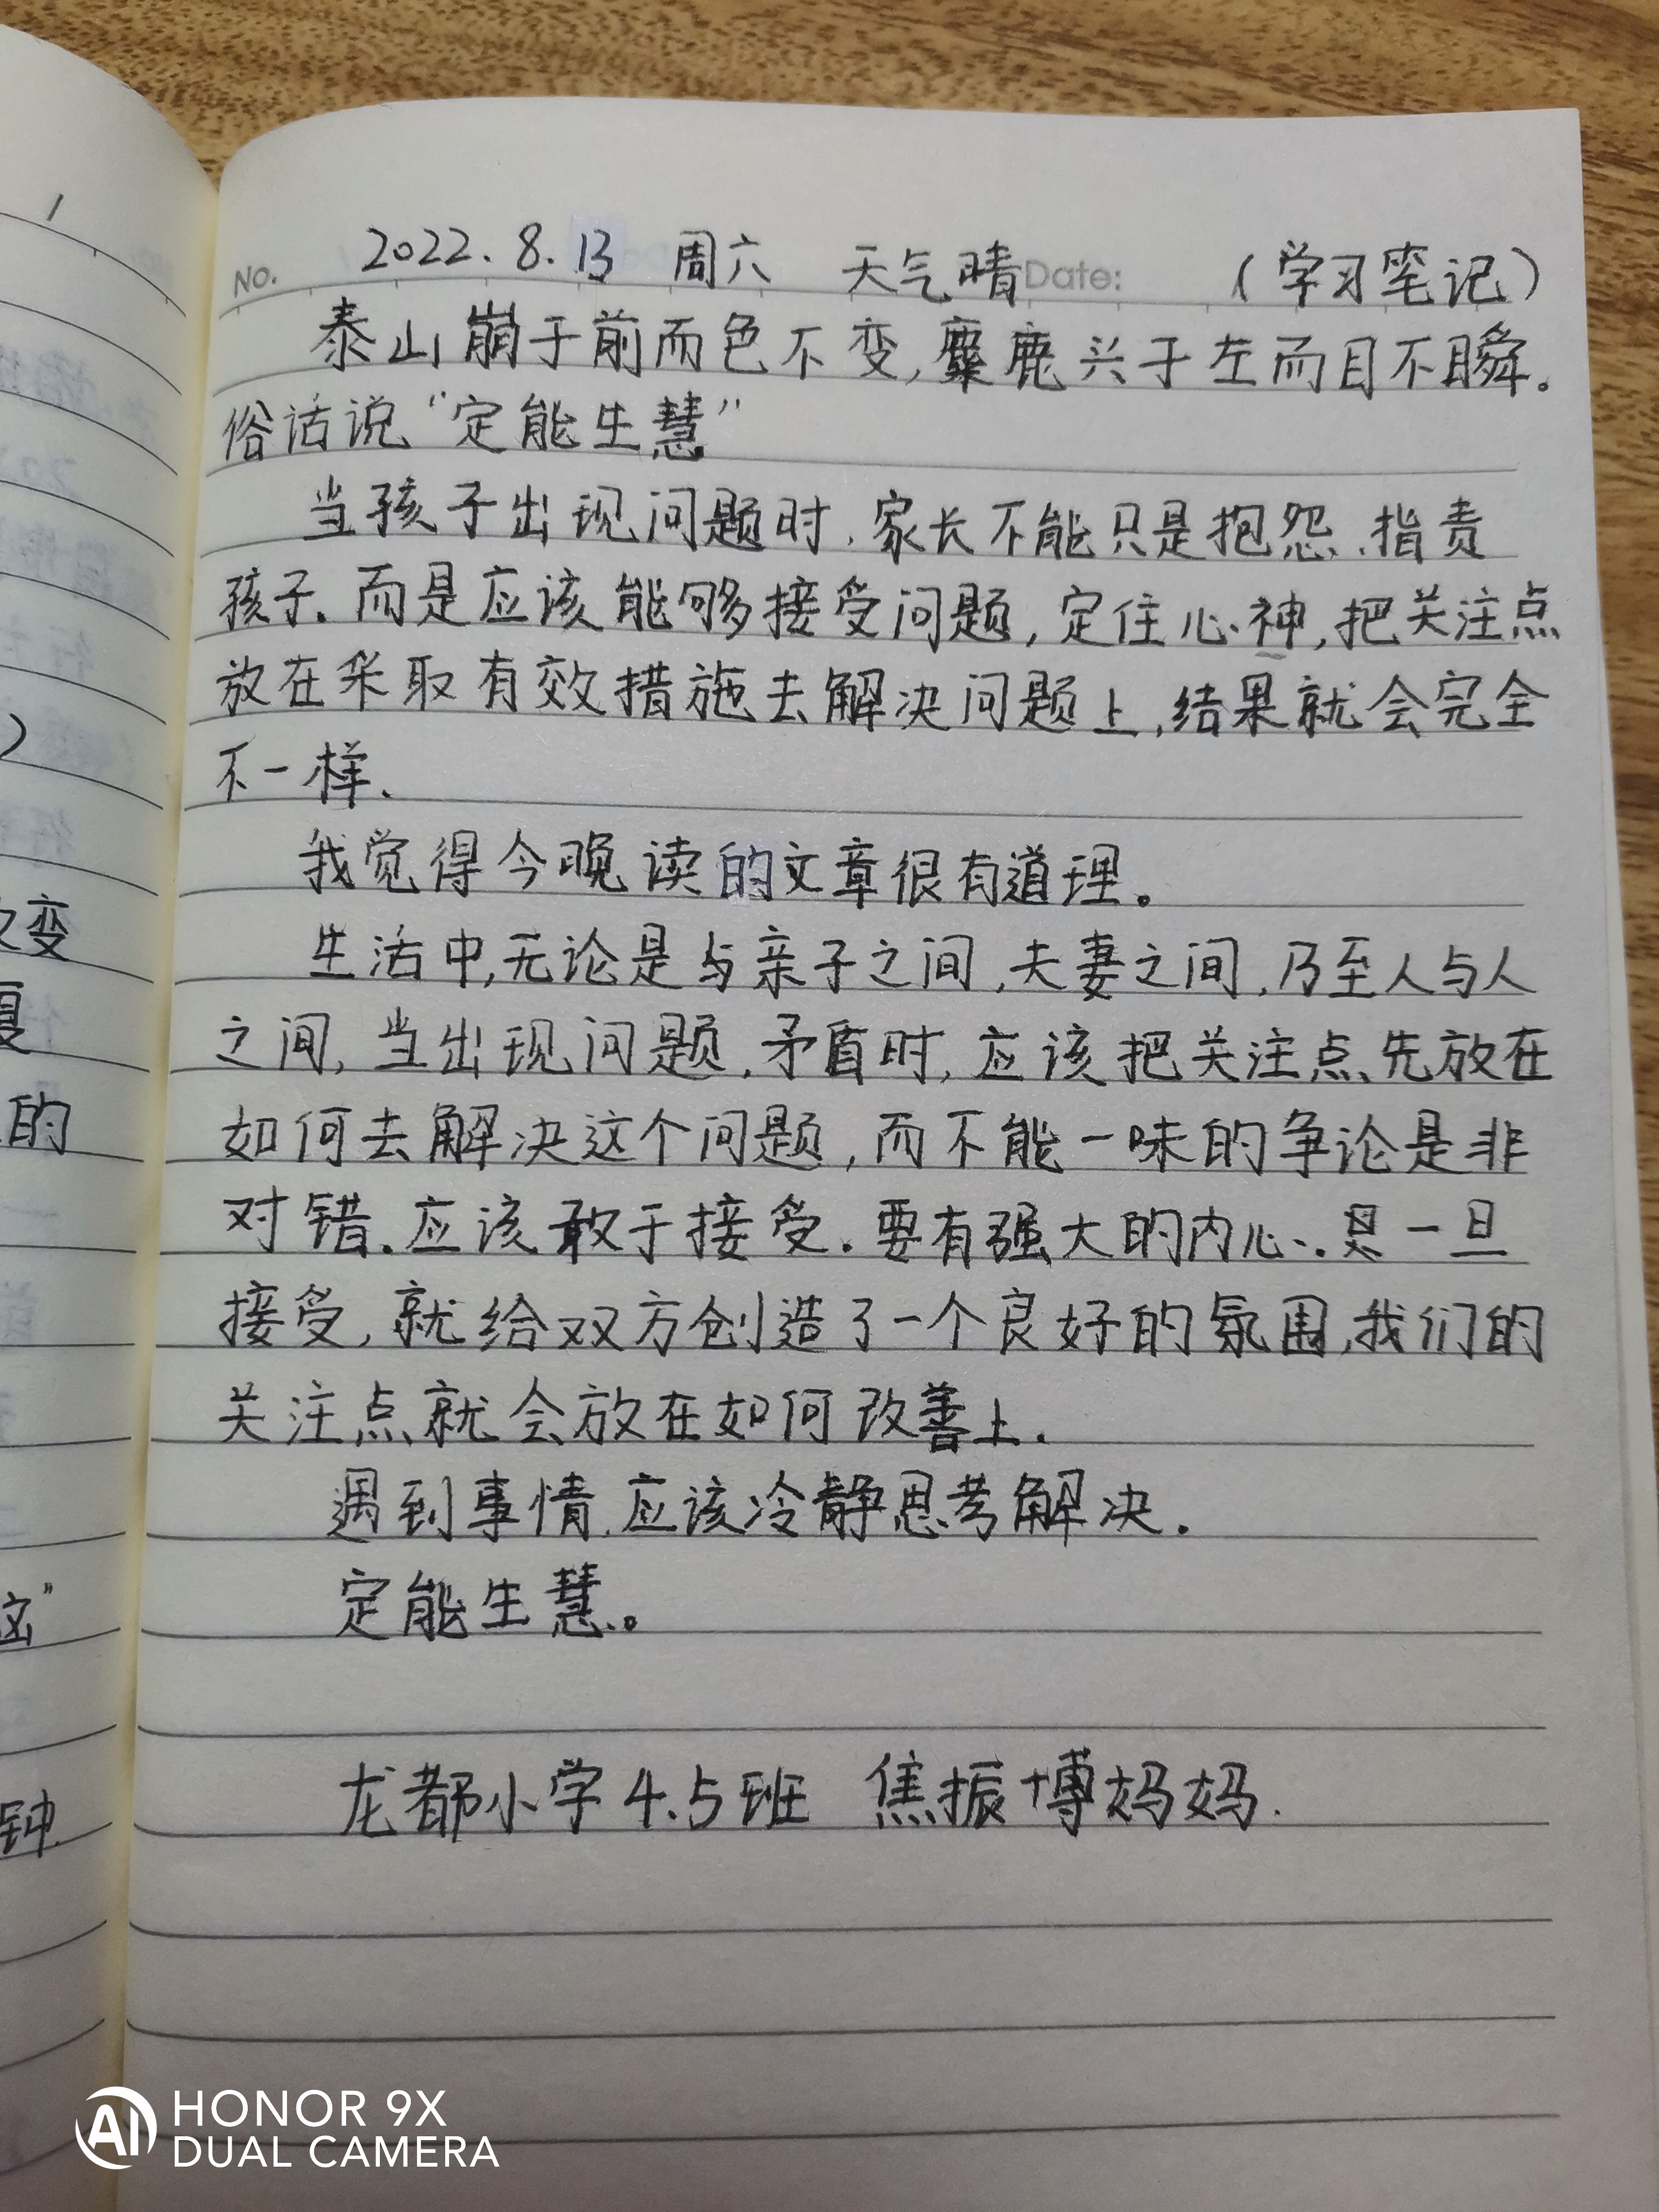 2022.8.13 周六 天气晴 (学习笔记)
NO. Date:
泰山崩于前而色不变,麋鹿兴于左而目不瞬。
俗话说“定能生慧”
当孩子出现问题时.家长不能只是抱怨.指责
孩子.而是应该能够接受问题,定住心神,把关注点
放在采取有效措施去解决问题上,结果就会完全
不一样.
我觉得今晚读的文章很有道理。
生活中,无论是与亲子之间,夫妻之间,乃至人与人
之间,当出现问题,矛盾时,应该把关注点先放在
如何去解决这个问题,而不能一味的争论是非
对错.应该敢于接受.要有强大的内心.一旦
接受,就给双方创造了一个良好的氛围,我们的
关注点就会放在如何改善上.
遇到事情.应该冷静思考解决.
定能生慧。
龙都小学4.5班 焦振博妈妈.
变
夏
的
”
钟
AI HONOR 9X
DUAL CAMERA